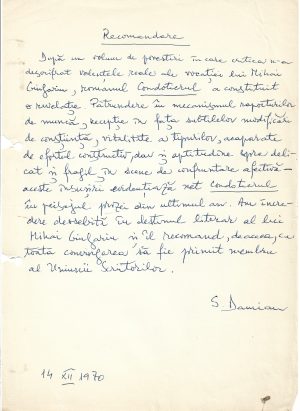 Recomandare
După un volum de povestiri în care critica n-a
descifrat valențele reale ale vocației lui Mihai
Giugariu, romanul Condotierul a constituit
o revelație. Pătrundere în mecanismul raporturilor
de muncă, recepție în fața subtilelor modificări
de conștiință, vitalitate a tipurilor, acaparate
de efortul constructiv, dar și aptitudine spre deli-
cat și fragil în scene de confruntare afectivă –
aceste însușiri evidențiază net Condotierul
în peisajul prozei din ultimul an. Am încre-
dere deosebită în destinul literar al lui
Mihai Giugariu și îl recomand, deaceea, cu
toată convingerea, să fie primit membru
al Uniunii Scriitorilor.
S. Damian
14 XII 1970